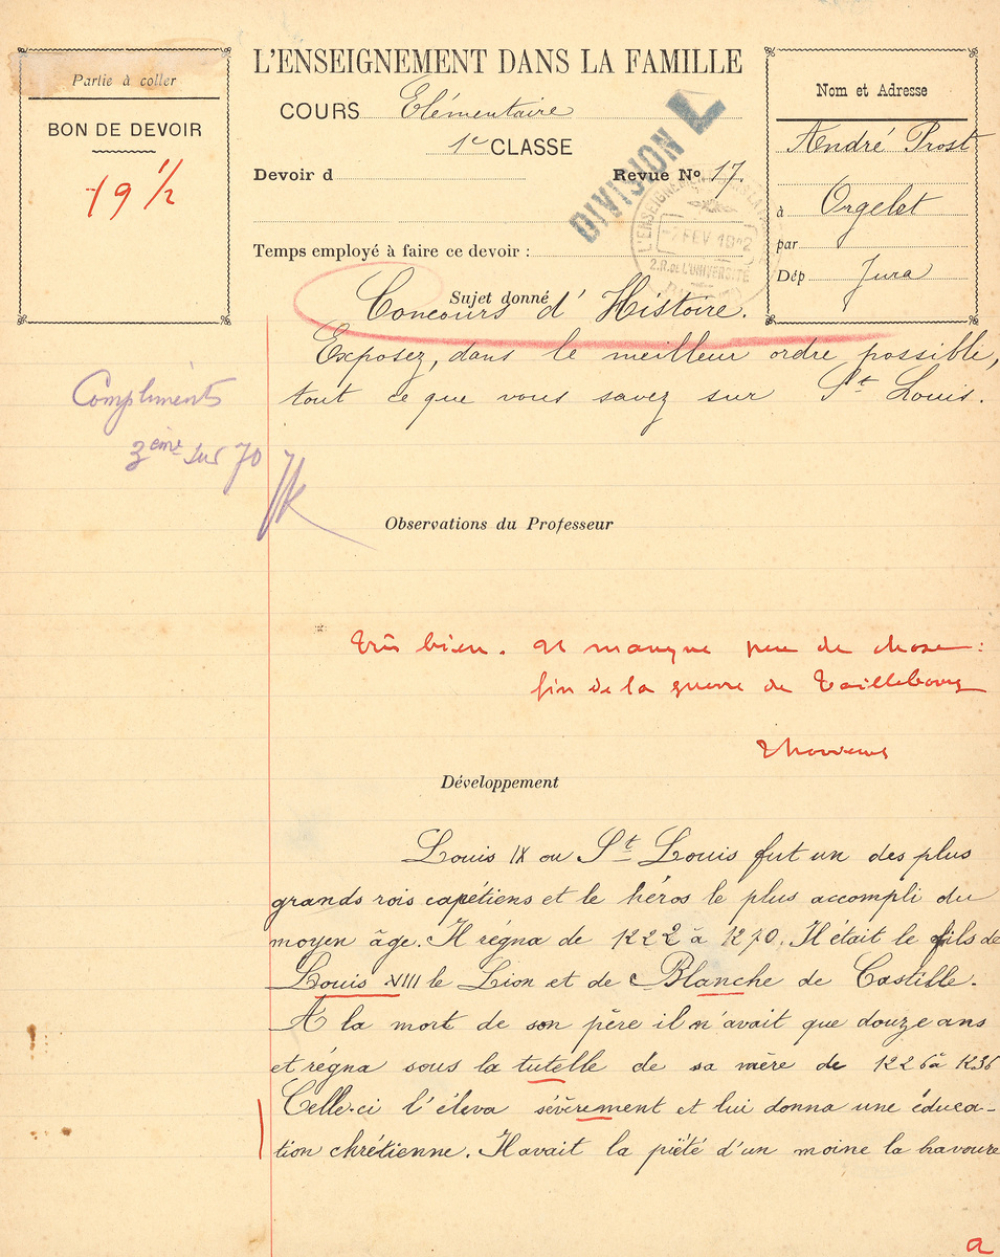 Partie à coller
BON DE DEVOIR
19 1/2
L'ENSEIGNEMENT DANS LA FAMILLE
COURS Elémentaire
1e CLASSE
Devoir d
Revue No 17.
DIVISION L
-2 FEV 19 2
2.R.de L'UNIVERSITÉ
Temps employé à faire ce devoir :
Nom et Adresse
André Prost
à Orgelet
par
Dép Jura
Sujet donné
Concours d'Histoire.
Exposez, dans le meilleur ordre possible,
tout ce que vous savez sur St Louis.
Compliments
3ème sur 70
Observations du Professeur
Très bien. Il manque peu de chose :
fin de la guerre de Taillebourg
Développement
Louis IX ou St Louis fut un des plus
grands rois capétiens et le héros le plus accompli du
moyen âge. Il régna de 1222 à 1270. Il était le fils de
Louis VIII le Lion et de Blanche de Castille.
A la mort de son père il n'avait que douze ans
et régna sous la tutelle de sa mère de 1226 à 1236
Celle-ci l'éleva sévèrement et lui donna une éduca-
tion chrétienne. Il avait la piété d'un moine la bravoure
a